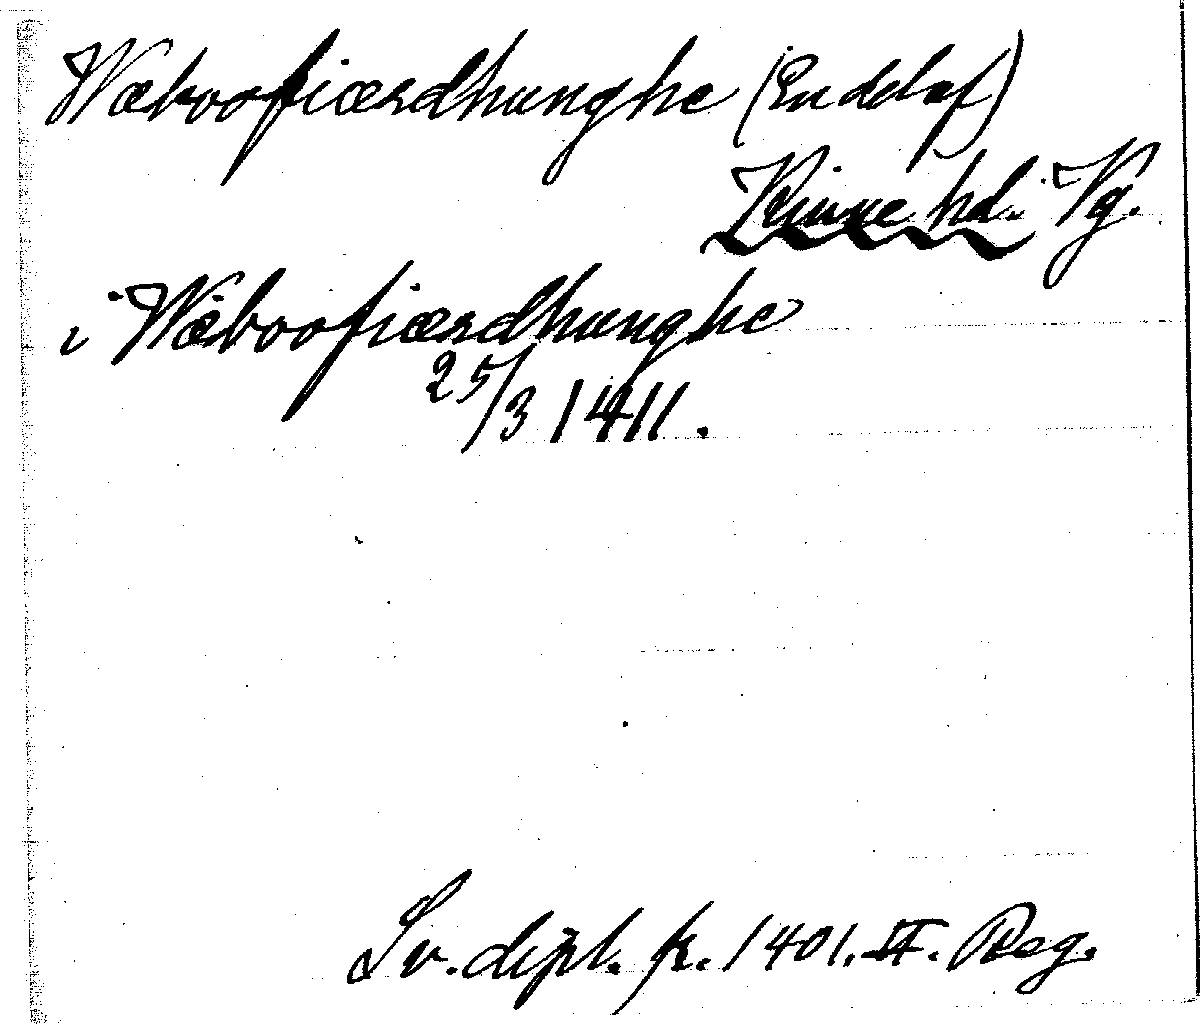 Wæboofiærdhunghe (En del af)
Kinne hd. Vg.
i Wæboofiærdhunghe
25/3 1411.
Sv. dipl. fr. 1401. II. Reg.